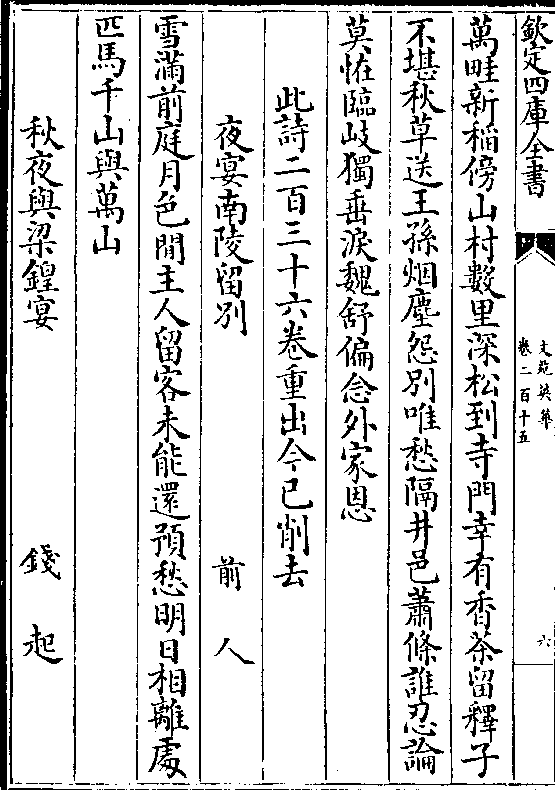 欽定四庫全書
文苑英華
卷二百十五
六
萬畦新稻傍山村數里深松到寺門幸有香茶留釋子
不堪秋草送王孫烟塵怨別唯愁隔井邑蕭條誰忍論
莫怪臨岐獨垂淚魏舒偏念外家恩
此詩二百三十六卷重出今已削去
夜宴南陵留別 前人
雪滿前庭月色閒主人留客未能還預愁明日相離處
匹馬千山與萬山
秋夜與梁鍠宴 錢起